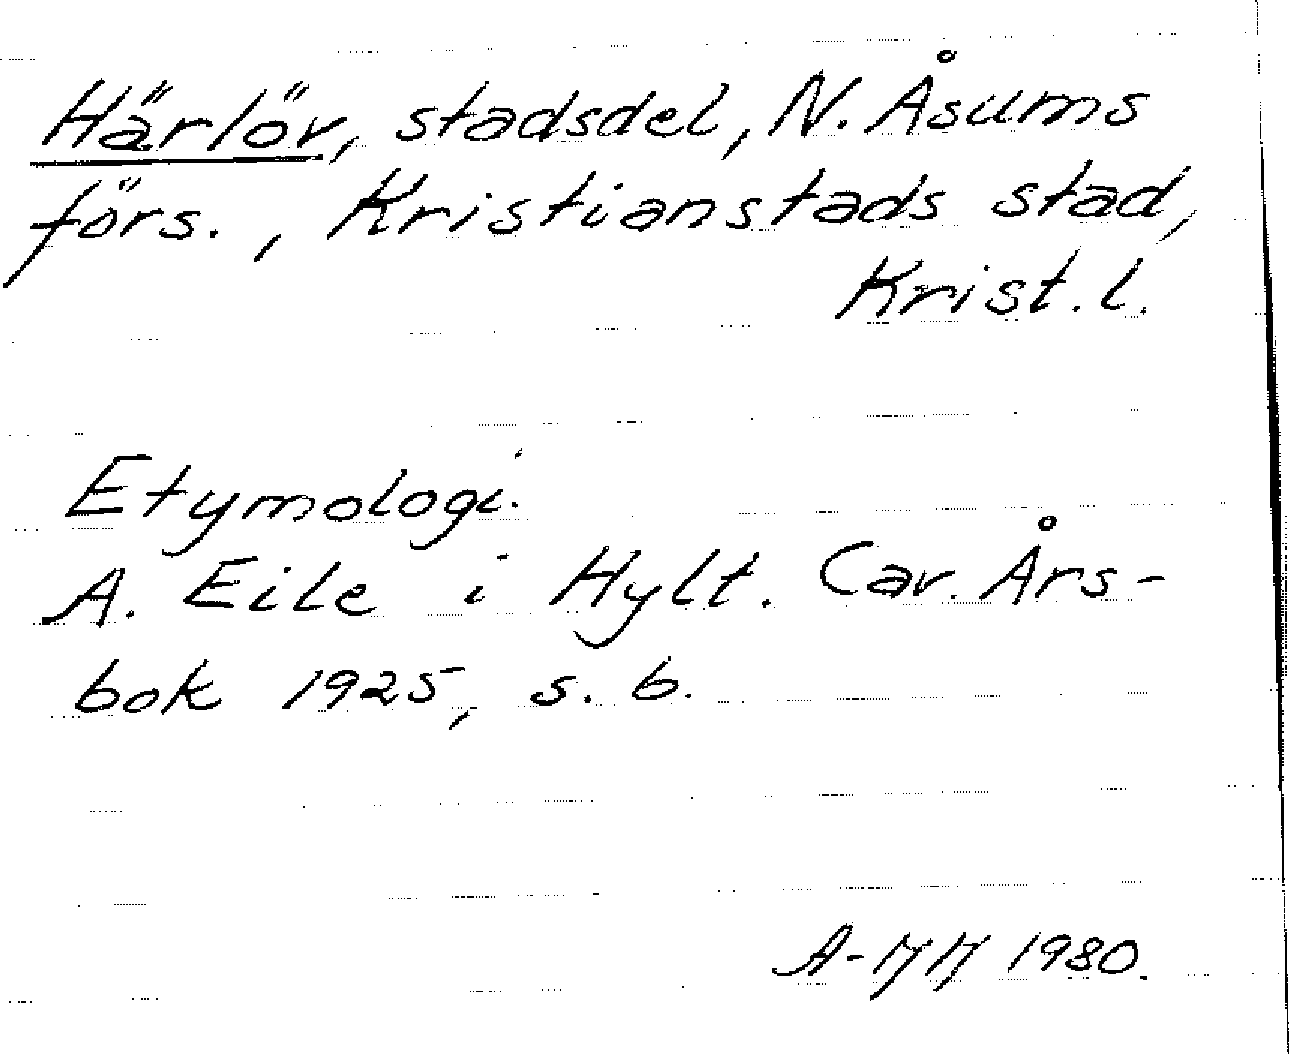 Härlöv, stadsdel, N. Åsums
förs., Kristianstads stad,
Krist. l.
Etymologi.
A. Eile i Hylt. Cav. Års-
bok 1925, s. 6.
1980.